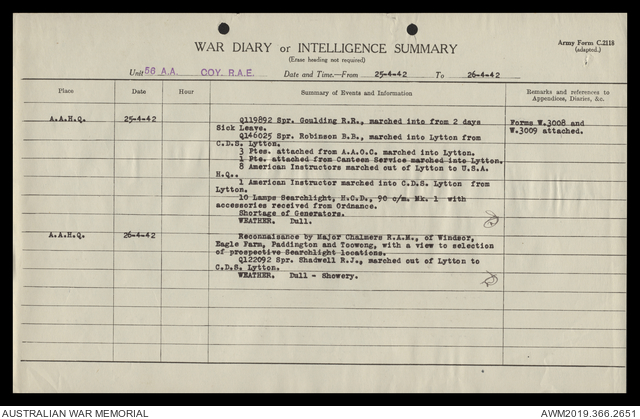 WAR DIARY or INTELLIGENCE SUMMARY
Army Form C.2118
(adapted.)
(Erase heading not required)
Unit 56 A.A. COY. R.A.E. Date and Time.—From 25-4-42 To 26-4-42
Place Date Hour Summary of Events and Information Remarks and references to
Appendices, Diaries, &c.
A.A.H.Q. 25-4-42 Q119892 Spr. Goulding R.R., marched into from 2 days Forms W.3008 and
Sick Leave. W.3009 attached.
Q146025 Spr. Robinson B.B., marched into Lytton from
C.D.S. Lytton.
3 Ptes. attached from A.A.O.C. marched into Lytton.
1 Pts. attached from Canteen Service marched into Lytton.
8 American Instructors marched out of Lytton to U.S.A.
H.Q..
1 American Instructor marched into C.D.S. Lytton from
Lytton.
10 Lamps Searchlight, H.C.D., 90 c/m. Mk. 1 with
accessories received from Ordnance.
Shortage of Generators.
WEATHER. Dull.
A.A.H.Q. 26-4-42 Reconnaisance by Major Chalmers R.A.M., of Windsor,
Eagle Farm, Paddington and Toowong, with a view to selection
of prospective Searchlight locations.
Q122092 Spr. Shadwell R.J., marched out of Lytton to
C.D.S. Lytton.
WEATHER. Dull - Showery.
AUSTRALIAN WAR MEMORIAL
AWM2019.366.2651